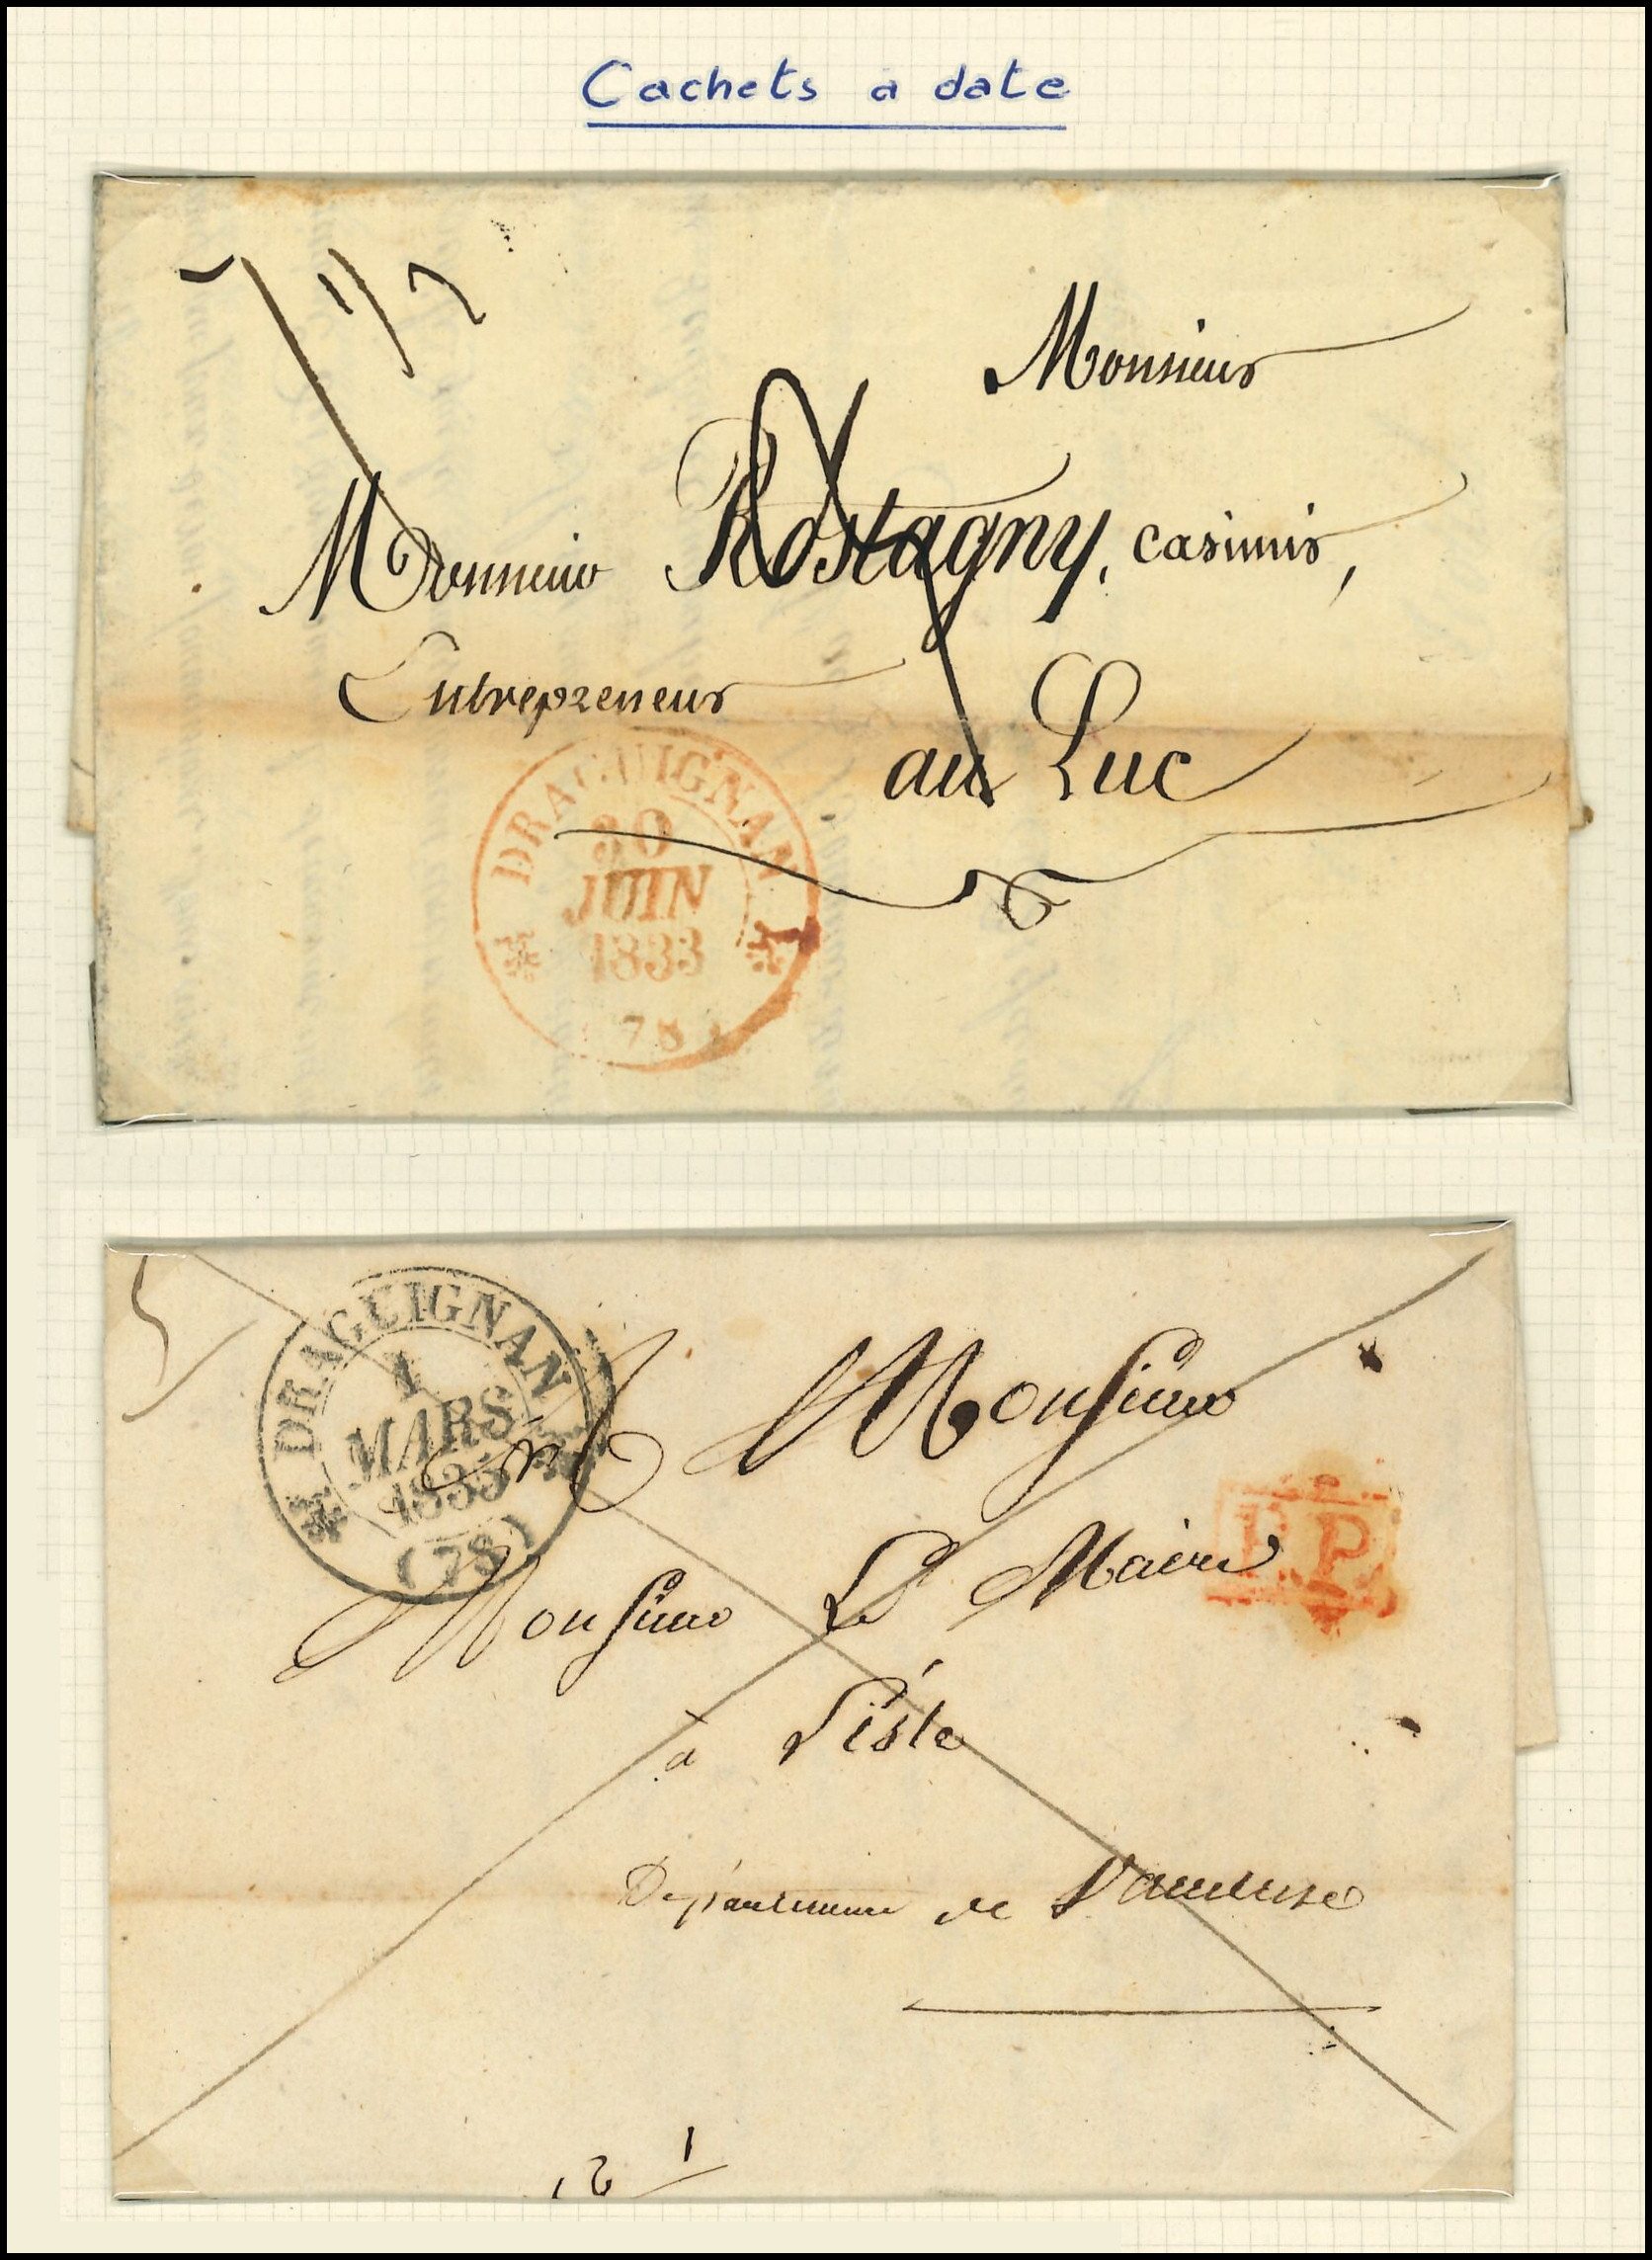 Cachets a date
Monsieur
Monsieur Rostagny, casimir,
Entrepreneur
au Luc
DRAGUIGNAN
30
JUIN
1833
78
DRAGUIGNAN
1
MARS
1835
(78)
Monsieur
P P
Monsieur Le Maire
à Lisle
Département de Vaucluse